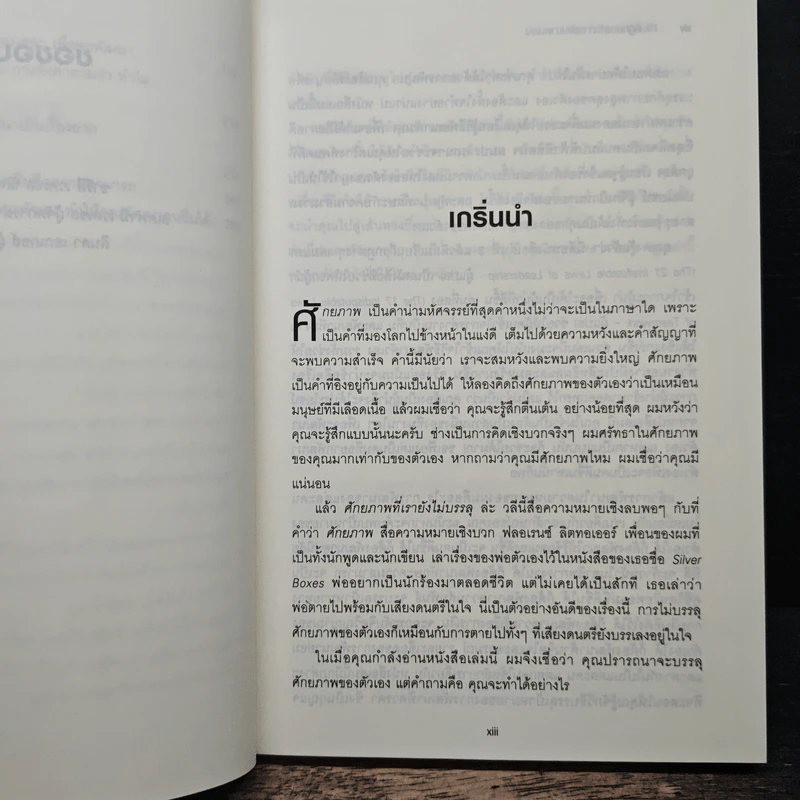 เกริ่นนำ
ศักยภาพ เป็นคำน่ามหัศจรรย์ที่สุดคำหนึ่งไม่ว่าจะเป็นในภาษาใด เพราะ
เป็นคำที่มองโลกไปข้างหน้าในแง่ดี เต็มไปด้วยความหวังและคำสัญญาที่
จะพบความสำเร็จ คำนี้มีนัยว่า เราจะสมหวังและพบความยิ่งใหญ่ ศักยภาพ
เป็นคำที่อิงอยู่กับความเป็นไปได้ ให้ลองคิดถึงศักยภาพของตัวเองว่าเป็นเหมือน
มนุษย์ที่มีเลือดเนื้อ แล้วผมเชื่อว่า คุณจะรู้สึกตื่นเต้น อย่างน้อยที่สุด ผมหวังว่า
คุณจะรู้สึกแบบนั้นนะครับ ช่างเป็นการคิดเชิงบวกจริงๆ ผมศรัทธาในศักยภาพ
ของคุณมากเท่ากับของตัวเอง หากถามว่าคุณมีศักยภาพไหม ผมเชื่อว่าคุณมี
แน่นอน
แล้ว ศักยภาพที่เรายังไม่บรรลุ ล่ะ วลีนี้สื่อความหมายเชิงลบพอๆ กับที่
คำว่า ศักยภาพ สื่อความหมายเชิงบวก ฟลอเรนซ์ ลิตทอเออร์ เพื่อนของผมที่
เป็นทั้งนักพูดและนักเขียน เล่าเรื่องของพ่อตัวเองไว้ในหนังสือของเธอชื่อ Silver
Boxes พ่ออยากเป็นนักร้องมาตลอดชีวิต แต่ไม่เคยได้เป็นสักที เธอเล่าว่า
พ่อตายไปพร้อมกับเสียงดนตรีในใจ นี่เป็นตัวอย่างอันดีของเรื่องนี้ การไม่บรรลุ
ศักยภาพของตัวเองก็เหมือนกับการตายไปทั้งๆ ที่เสียงดนตรียังบรรเลงอยู่ในใจ
ในเมื่อคุณกำลังอ่านหนังสือเล่มนี้ ผมจึงเชื่อว่า คุณปรารถนาจะบรรลุ
ศักยภาพของตัวเอง แต่คำถามคือ คุณจะทำได้อย่างไร
xiii